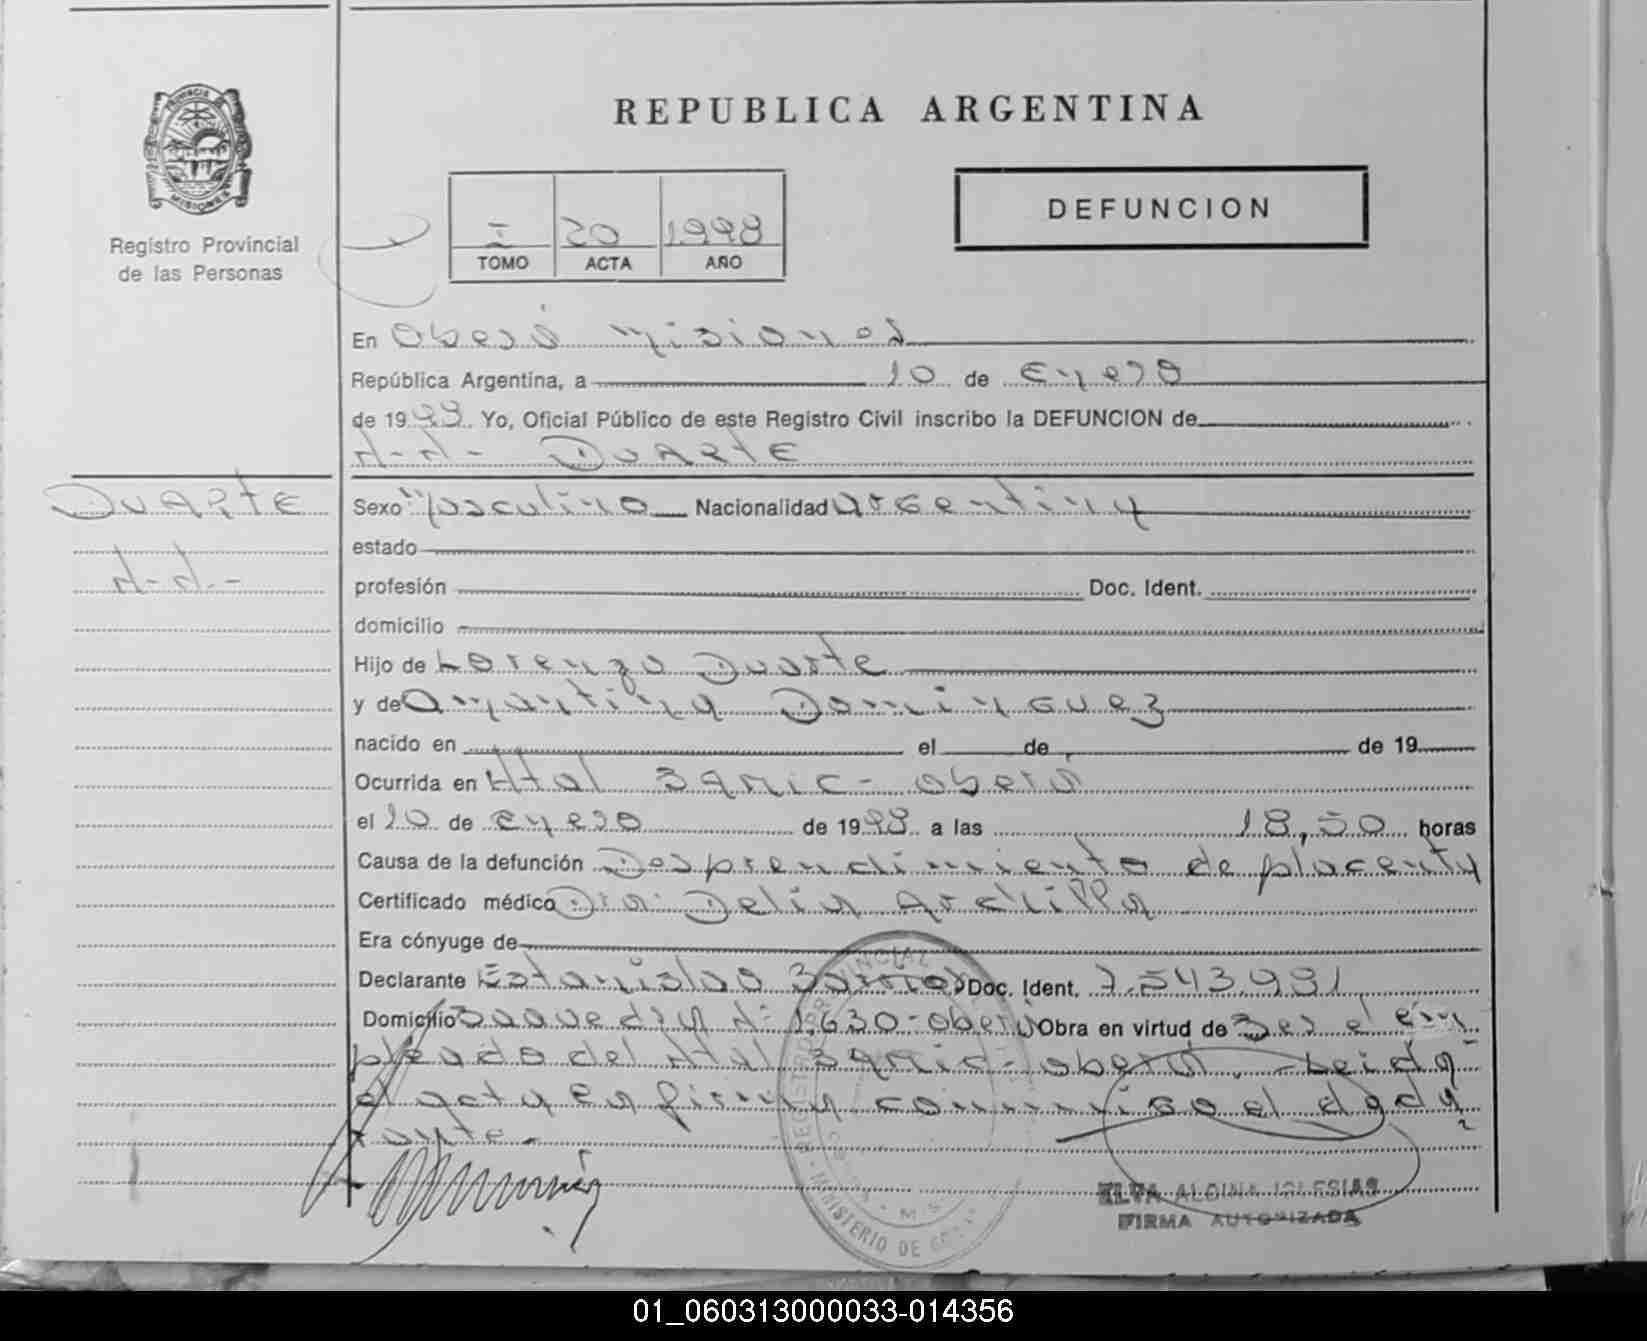 REPUBLICA ARGENTINA
PROVINCIA DE
MISIONES
Registro Provincial
de las Personas
I 20 1998
TOMO ACTA AÑO
DEFUNCION
En Oberá Misiones
República Argentina, a 10 de Enero
de 1998 Yo, Oficial Público de este Registro Civil inscribo la DEFUNCION de
N-N- DUARTE
DUARTE
N-N-
Sexo Masculino Nacionalidad Argentina
estado
profesión Doc. Ident.
domicilio
Hijo de Lorenzo Duarte
y de Amantina Dominguez
nacido en el de de 19
Ocurrida en Htal Samic - Oberá
el 10 de Enero de 1998 a las 18,50 horas
Causa de la defunción Desprendimiento de placenta
Certificado médico Dra. Delia
Era cónyuge de
Declarante Estanislao Doc. Ident. 7.543.991
Domicilio Saavedra Nº 1.630-Oberá Obra en virtud de Ser el em
pleado del Htal Samic-Oberá. Leida
el acta la firma conmigo el decla
rante.
REGISTRO PROVINCIAL
MINISTERIO DE
ELVA ALDINA IGLESIAS
FIRMA AUTORIZADA
01_060313000033-014356